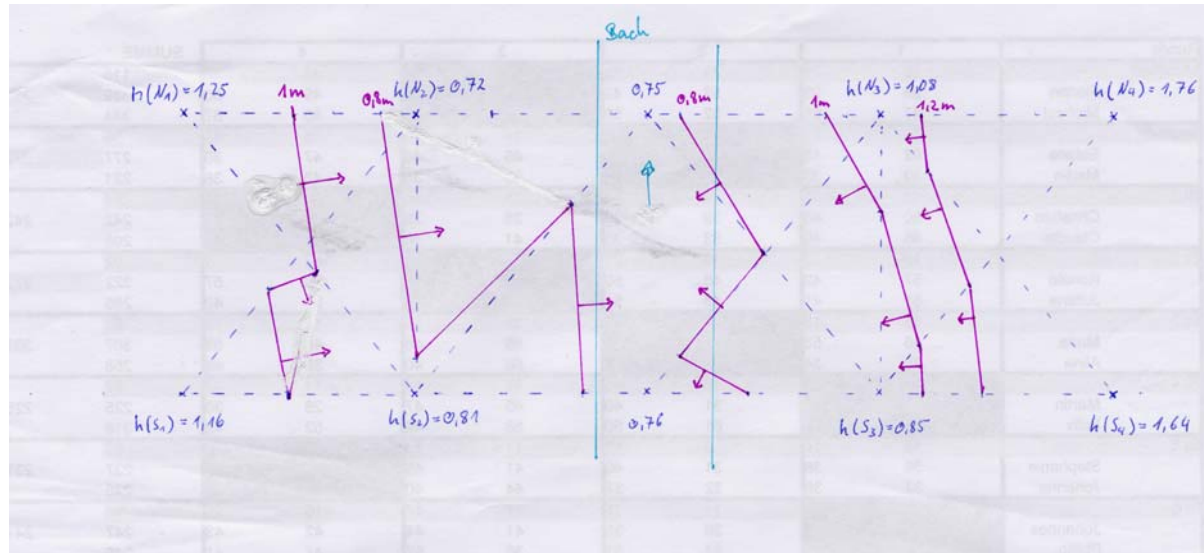 Bach
h(N₁) = 1,25
1m
0,8m
h(N₂) = 0,72
0,75
0,8m
1m
h(N₃) = 1,08
1,2m
h(N₄) = 1,76
h(S₁) = 1,16
h(S₂) = 0,81
0,76
h(S₃) = 0,85
h(S₄) = 1,64